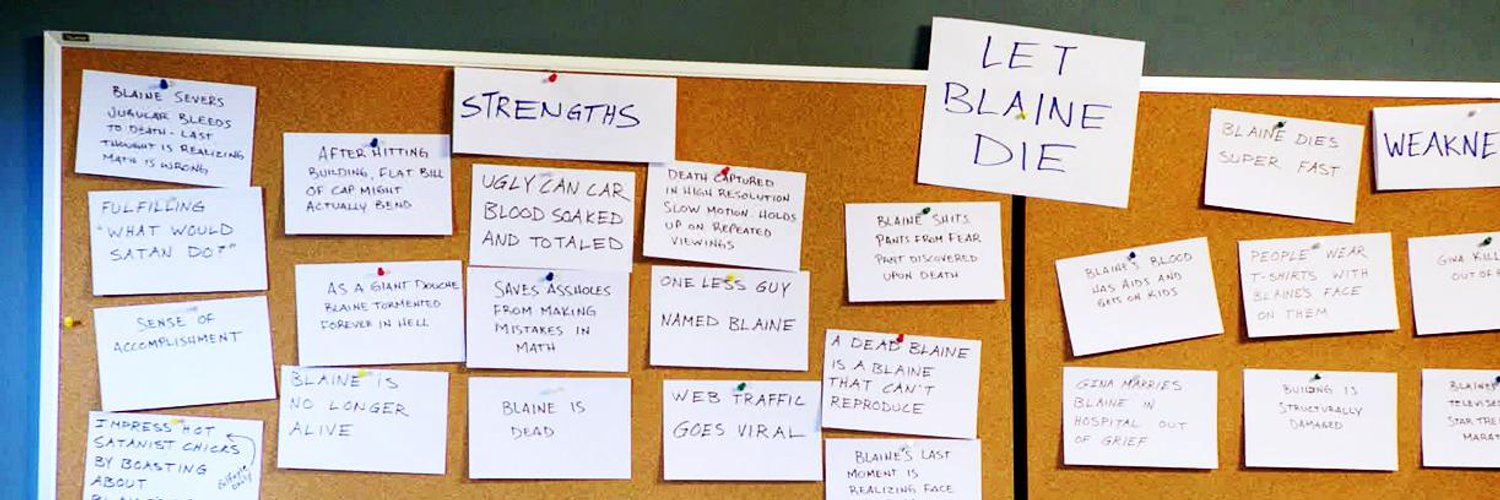 LET
BLAINE
DIE
STRENGTHS
BLAINE SEVERS
JUGULAR BLEEDS
TO DEATH - LAST
THOUGHT IS REALIZING
MATH IS WRONG
FULFILLING
"WHAT WOULD
SATAN DO?"
SENSE OF
ACCOMPLISHMENT
IMPRESS HOT
SATANIST CHICKS
BY BOASTING
ABOUT
AFTER HITTING
BUILDING, FLAT BILL
OF CAP MIGHT
ACTUALLY BEND
AS A GIANT DOUCHE
BLAINE TORMENTED
FOREVER IN HELL
BLAINE IS
NO LONGER
ALIVE
UGLY CAN CAR
BLOOD SOAKED
AND TOTALED
SAVES ASSHOLES
FROM MAKING
MISTAKES IN
MATH
BLAINE IS
DEAD
DEATH CAPTURED
IN HIGH RESOLUTION
SLOW MOTION HOLDS
UP ON REPEATED
VIEWINGS
ONE LESS GUY
NAMED BLAINE
WEB TRAFFIC
GOES VIRAL
BLAINE SHITS
PANTS FROM FEAR
PANT DISCOVERED
UPON DEATH
A DEAD BLAINE
IS A BLAINE
THAT CAN'T
REPRODUCE
BLAINE'S LAST
MOMENT IS
REALIZING FACE
WEAKNE
BLAINE DIES
SUPER FAST
BLAINE'S BLOOD
HAS AIDS AND
GETS ON KIDS
PEOPLE WEAR
T-SHIRTS WITH
BLAINE'S FACE
ON THEM
GINA KILL
OUT OF
GINA MARRIES
BLAINE IN
HOSPITAL OUT
OF GRIEF
BUILDING IS
STRUCTURALLY
DAMAGED
BLAINE'
TELEVISE
STAR TRE
MARAT